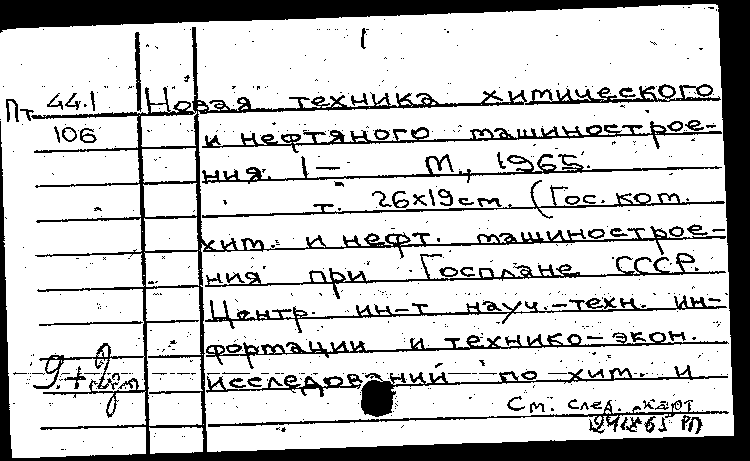 1
Пт 44.1 Новая техника химического
106 и нефтяного машинострое-
ния. 1— М., 1965.
т. 26х19см. (Гос. ком.
хим. и нефт. машинострое-
ния при Госплане СССР.
Центр. ин-т науч.-техн. ин-
формации и технико-экон.
исследований по хим. и
См. след. карт